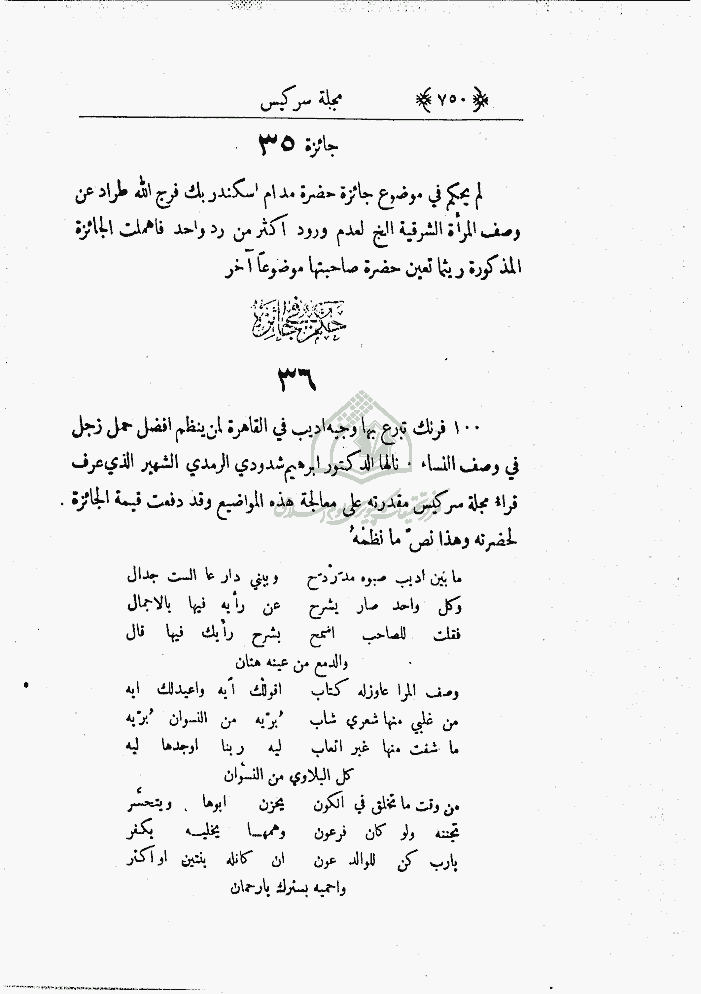 ﴿ ٧٥٠ ﴾ مجلة سركيس
جائزة ٣٥
لم يحكم في موضوع جائزة حضرة مدام اسكندر بك فرج الله طراد عن
وصف المرأة الشرقية الخ لعدم ورود اكثر من رد واحد فاهملت الجائزة
المذكورة ريثما تعين حضرة صاحبتها موضوعاً آخر
حكم في جائزة
٣٦
١٠٠ فرنك تبرع بها وجيه اديب في القاهرة لمن ينظم افضل حمل زجل
في وصف النساء . نالها الدكتور ابرهيم شدودي الرمدي الشهير الذي عرف
قراء مجلة سركيس مقدرته على معالجة هذه المواضيع وقد دفعت قيمة الجائزة .
لحضرته وهذا نصّ ما نظمهُ
ما بين اديب صبوه مدَّرْدَح وبيني دار عا الست جدال
وكل واحد صار يشرح عن رأيه فيها بالاجمال
فقلت للصاحب اضمح يشرح رأيك فيها قال
والدمع من عينه هتان
وصف المرا عاوزله كتاب اقولك أيه واعيدلك ايه
من غلبي منها شعري شاب بُريّه من النسوان بُريّه
ما شفت منها غير اتعاب ليه ربنا اوجدها ليه
كل البلاوي من النسوان
من وقت ما تخلق في الكون يحزن ابوها ويتحسَّر
تجننه ولو كان فرعون وهمها يخليه يكفر
يارب كن للوالد عون ان كانله بنتين او اكثر
واحميه بسترك يارحمان